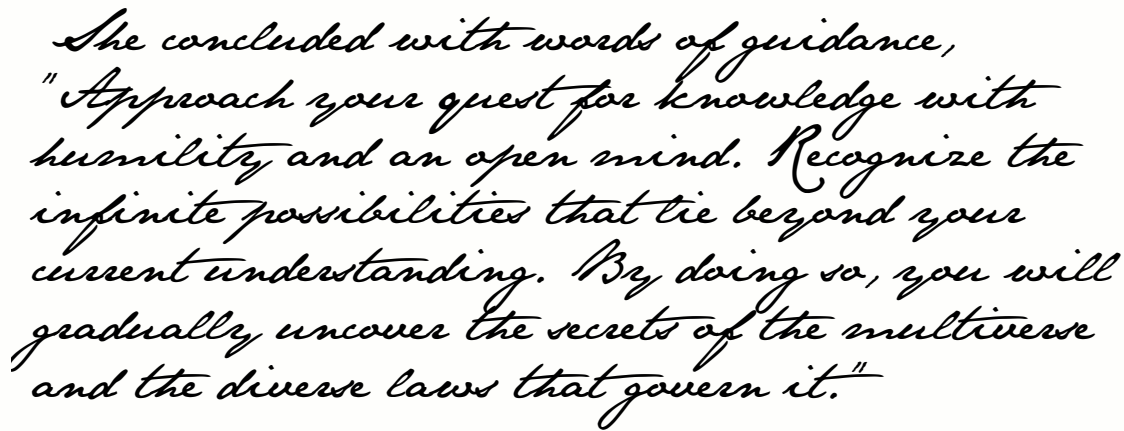 She concluded with words of guidance,
"Approach your quest for knowledge with
humility and an open mind. Recognize the
infinite possibilities that lie beyond your
current understanding. By doing so, you will
gradually uncover the secrets of the multiverse
and the diverse laws that govern it."